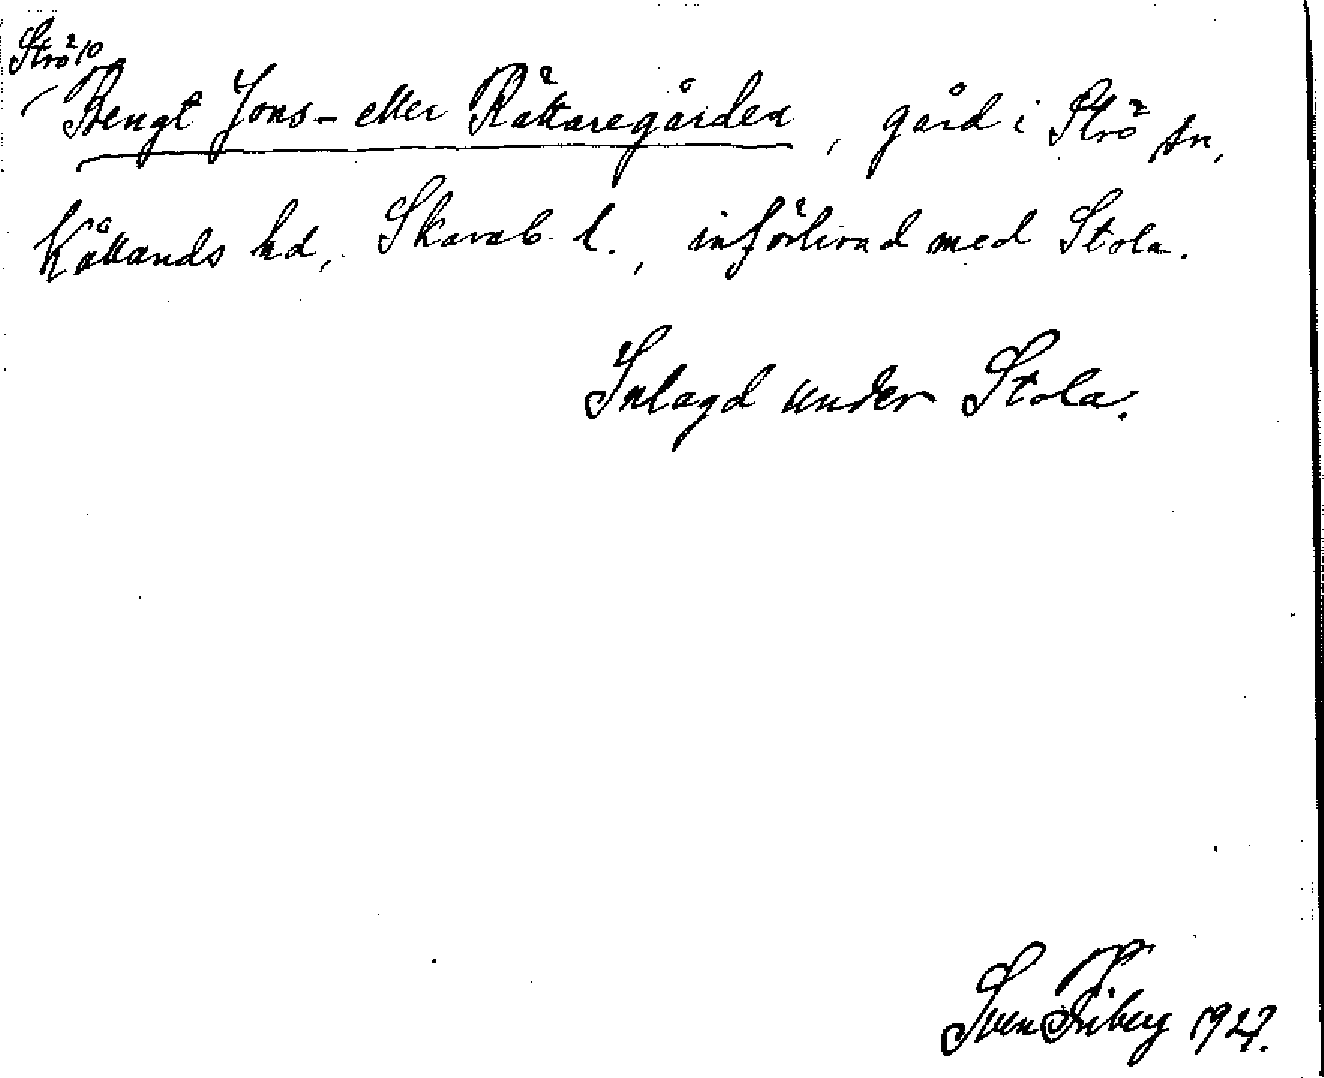 Strö 10
Bengt Jons- eller Rättaregården, gård i Strö sn,
Kållands hd, Skarab. l., införlivad med Stola.
Inlagd under Stola.
Sven Friberg 1927.